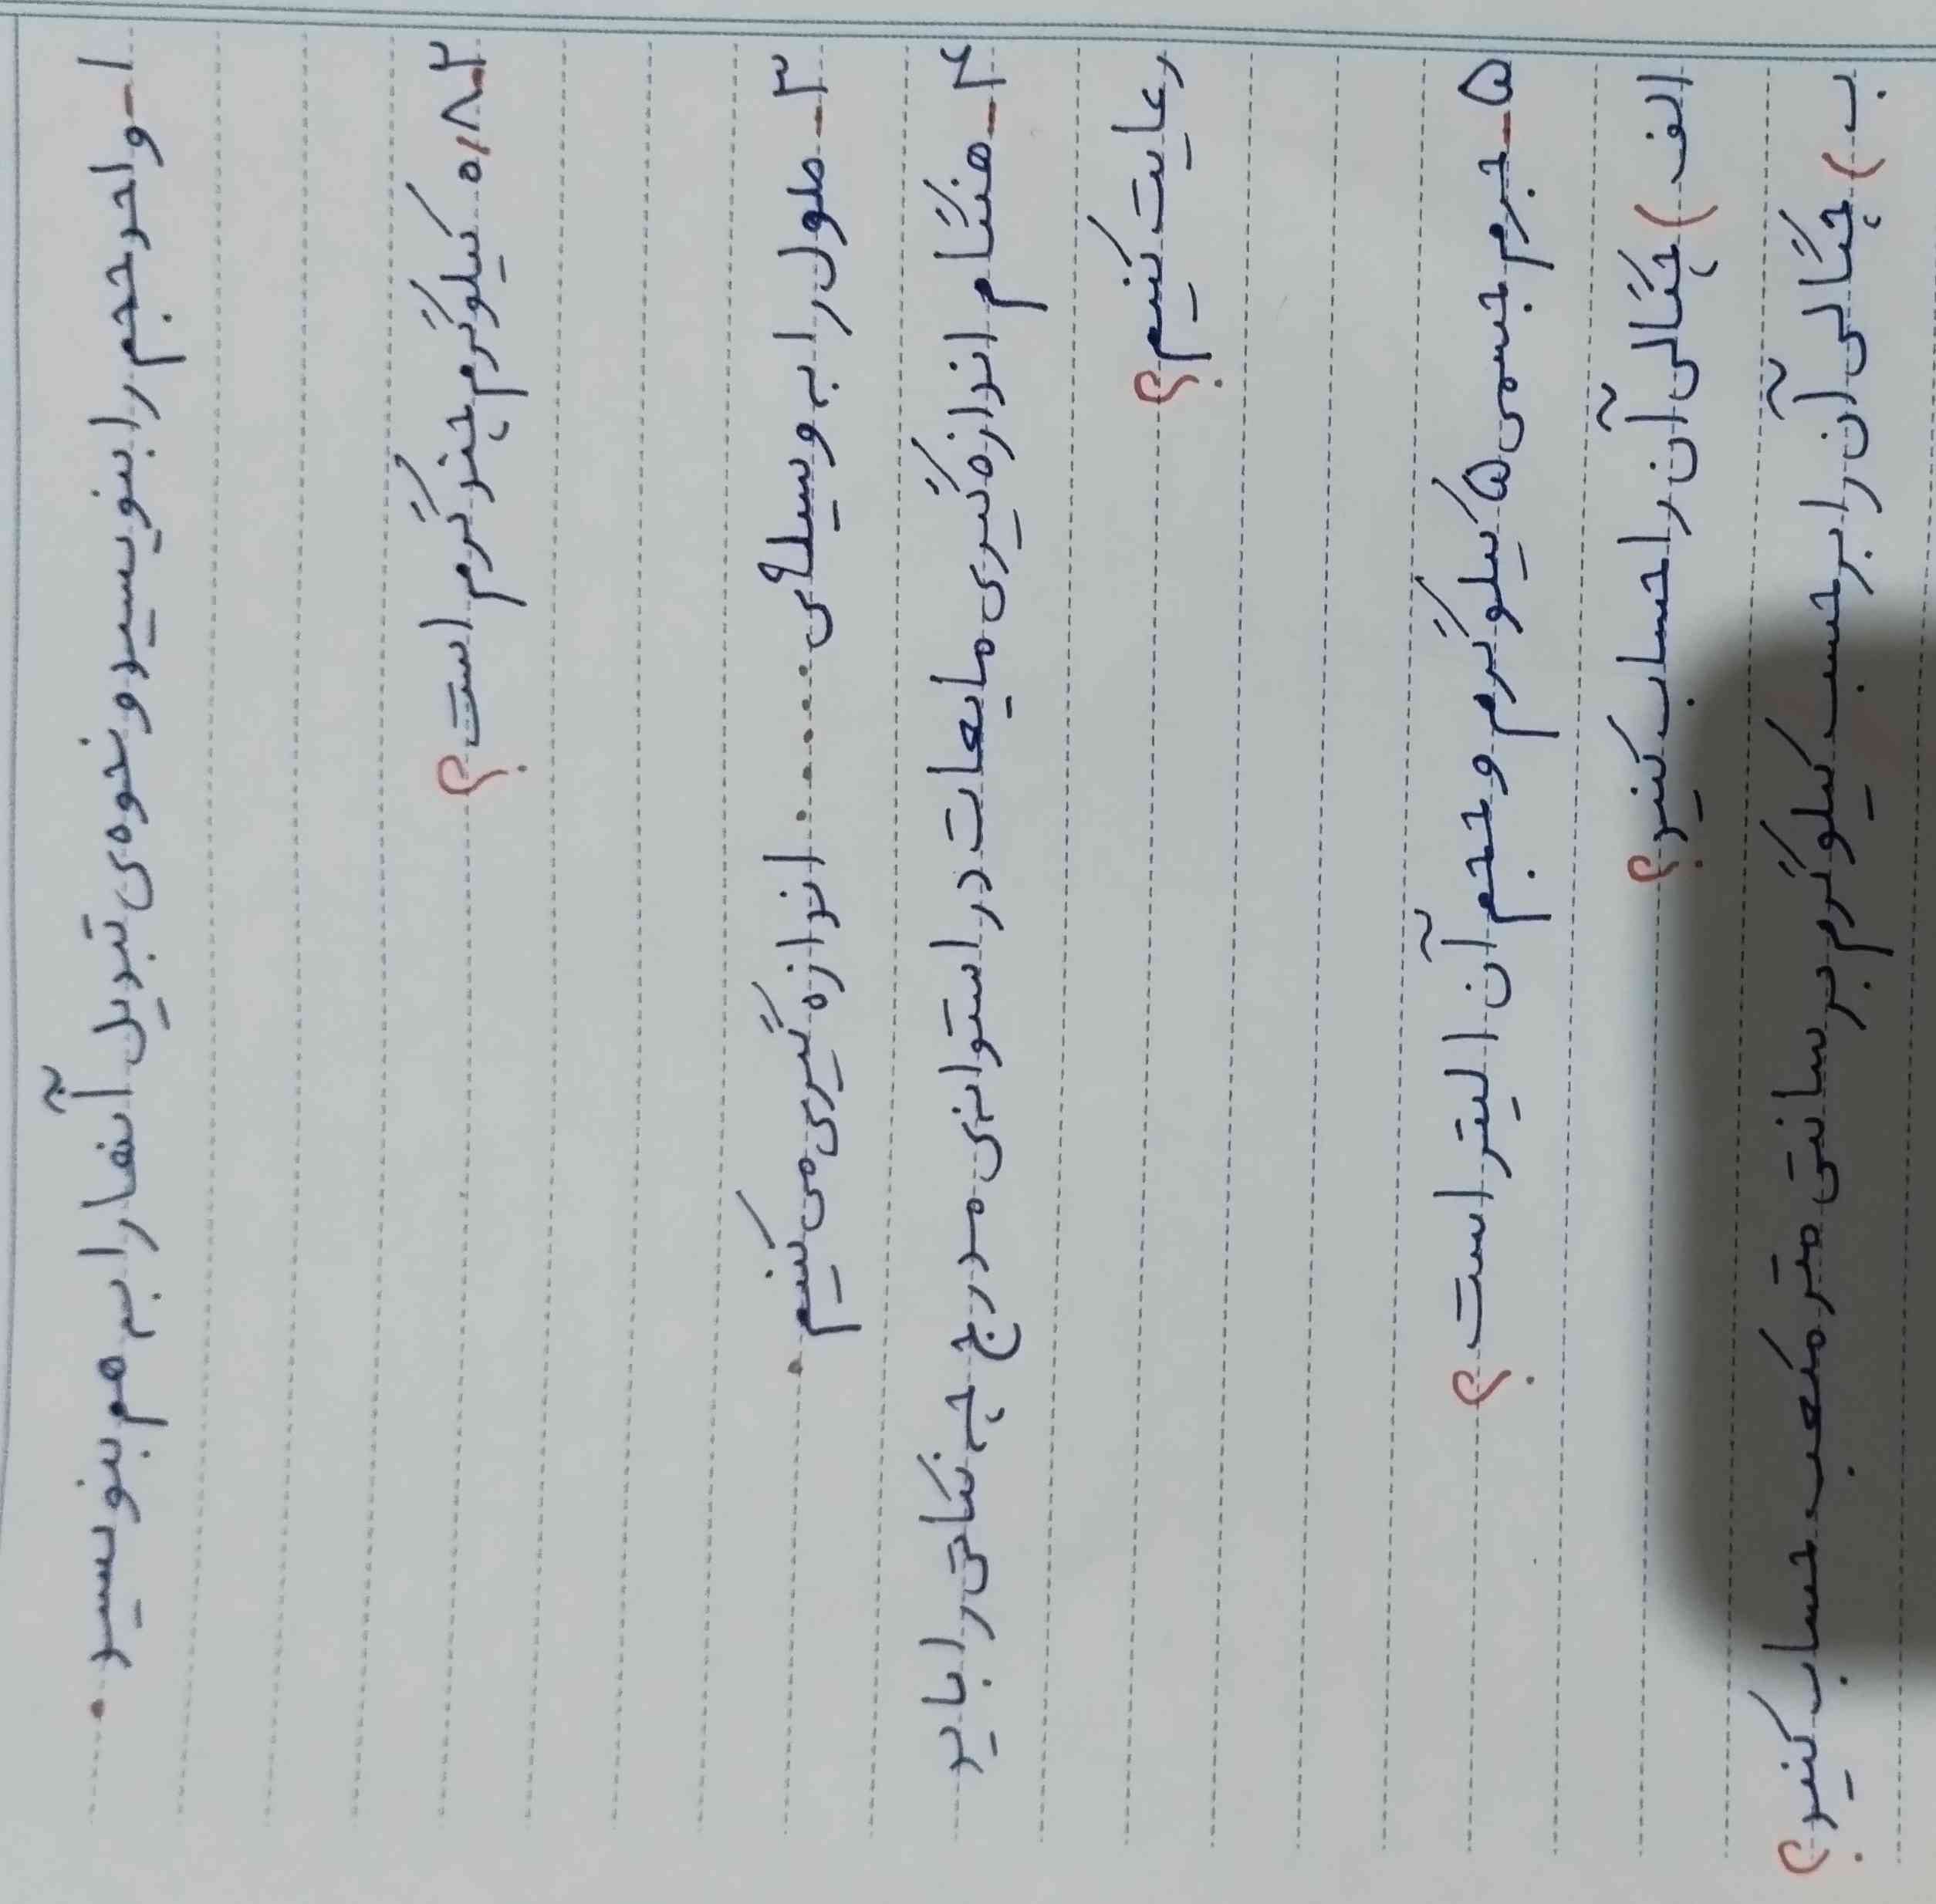 ۱- واحد حجم را بنویسید و نحوه‌ی تبدیل آنها را به هم بنویسید.
۲- ۰٫۸ کیلوگرم چند گرم است؟
۳- طول را به وسیله‌ای ...... اندازه گیری می کنیم.
۴- هنگام اندازه گیری مایعات در استوانه‌ی مدرج چه نکاتی را باید
رعایت کنیم؟
۵- جرم جسمی ۵ کیلوگرم و حجم آن ۱ لیتر است؟
الف) چگالی آن را حساب کنید؟
ب) چگالی آن را بر حسب کیلوگرم بر سانتی متر مکعب حساب کنید؟